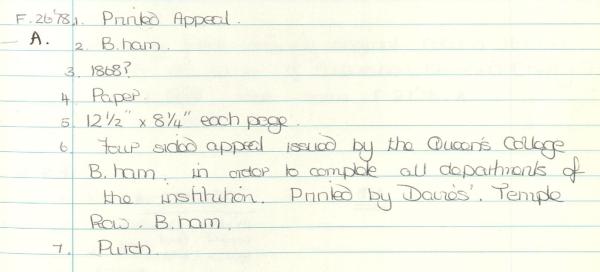 F.26'78. 1. Printed Appeal.
A. 2. B.ham.
3. 1868?
4. Paper.
5. 12 1/2" x 8 1/4" each page.
6. Four sided appeal issued by the Queen's College
B.ham. in order to complete all departments of
the institution. Printed by Davies'. Temple
Row. B.ham.
7. Purch.